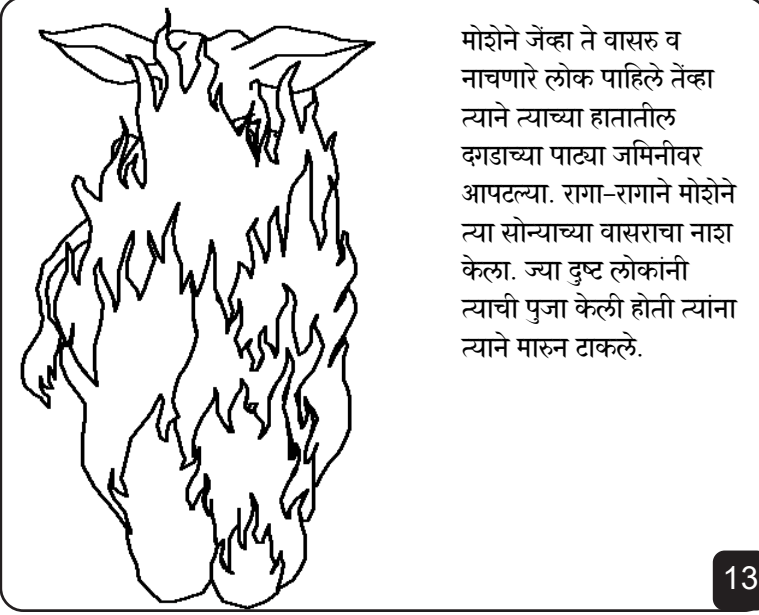 मोशेने जेंव्हा ते वासरु व
नाचणारे लोक पाहिले तेंव्हा
त्याने त्याच्या हातातील
दगडाच्या पाट्या जमिनीवर
आपटल्या. रागा-रागाने मोशेने
त्या सोन्याच्या वासराचा नाश
केला. ज्या दुष्ट लोकांनी
त्याची पुजा केली होती त्यांना
त्याने मारुन टाकले.
13